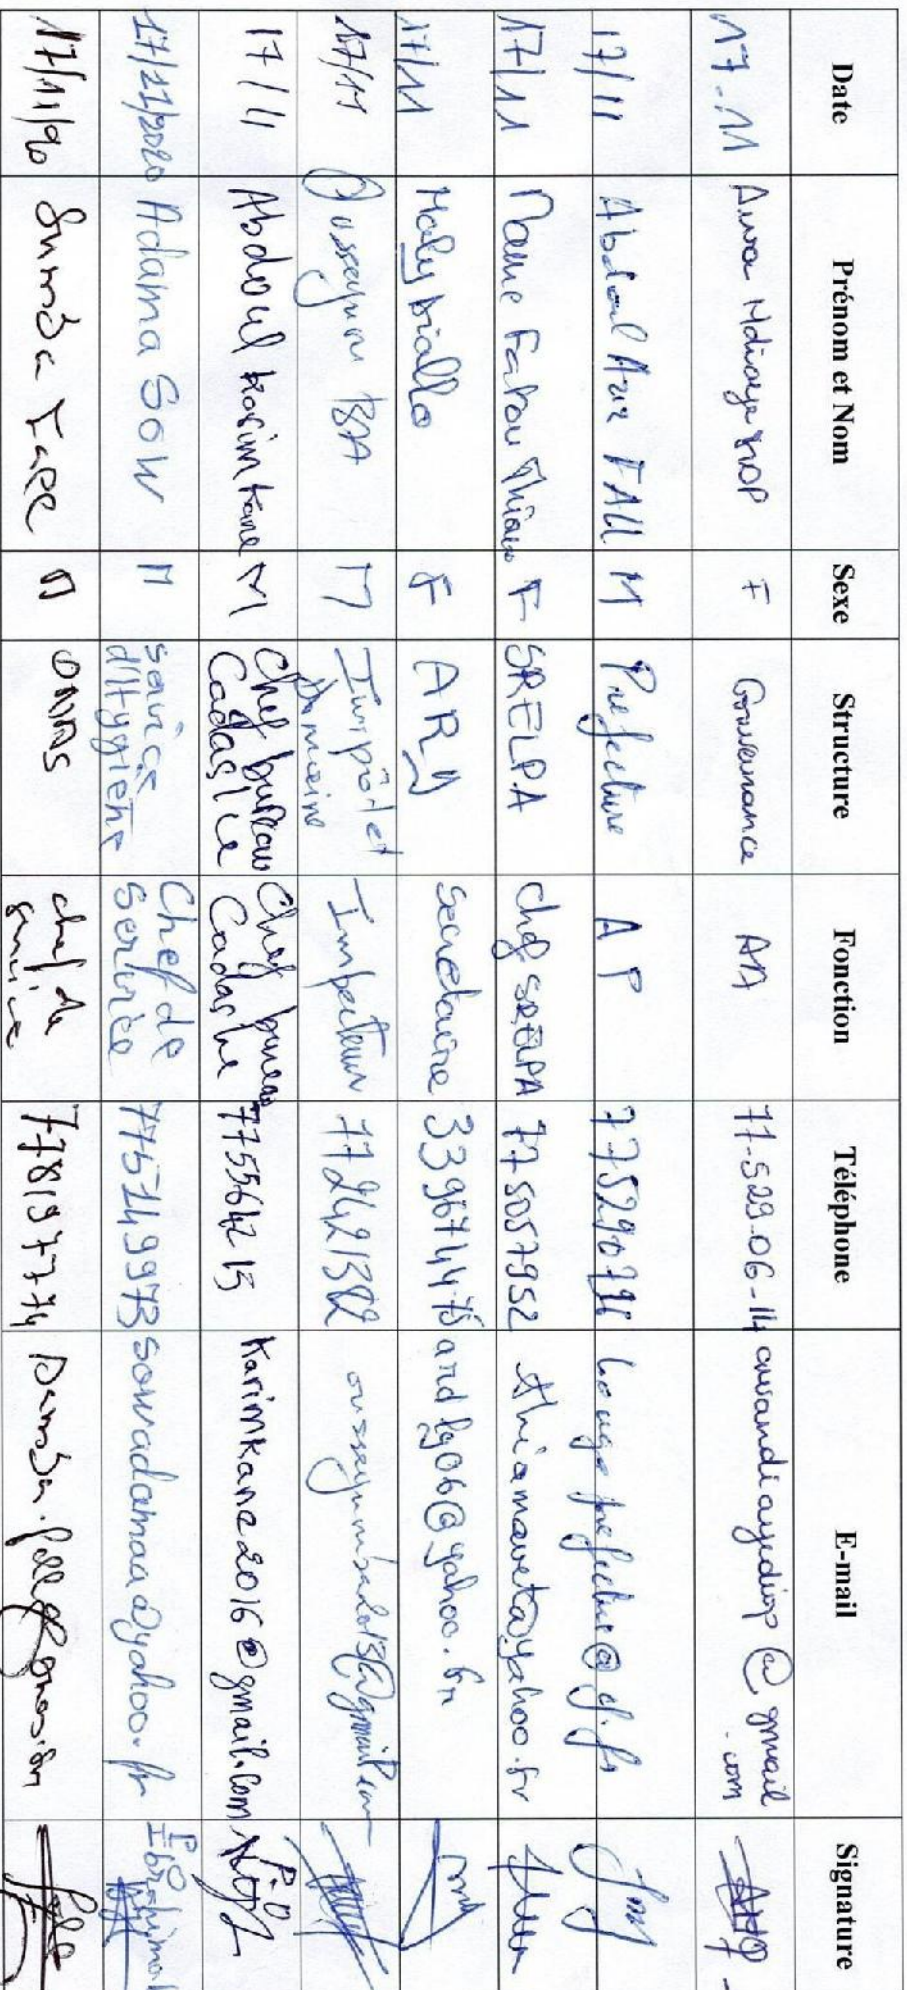 Date Prénom et Nom Sexe Structure Fonction Téléphone E-mail Signature
17-11 Awa Ndiaye DIOP F Gouvernance AA 77-529-06-14 awandiayediop@gmail.com
17/11 Abdoul Aziz FALL M Prefecture AP
17/11 Mame Fatou Thiam F SRELPA chef SRELPA 775057952 thiamaweta@yahoo.fr
17/11 Maly Diallo F ARD Secretaire ardlg06@yahoo.fr
17/11 Ousseynou BA M Impôt et Domaine Inspecteur 772421382
17/11 Abdoul Karim Kane M Chef bureau Cadastre Chef bureau Cadastre 775564213 Karimkane2016@gmail.com P.O
17/11/2020 Adama Sow M Service d'Hygiène Chef de Service 775149973 sowadamaa@yahoo.fr P Ibrahima
17/11/20 M ONAS chef de service 778197774